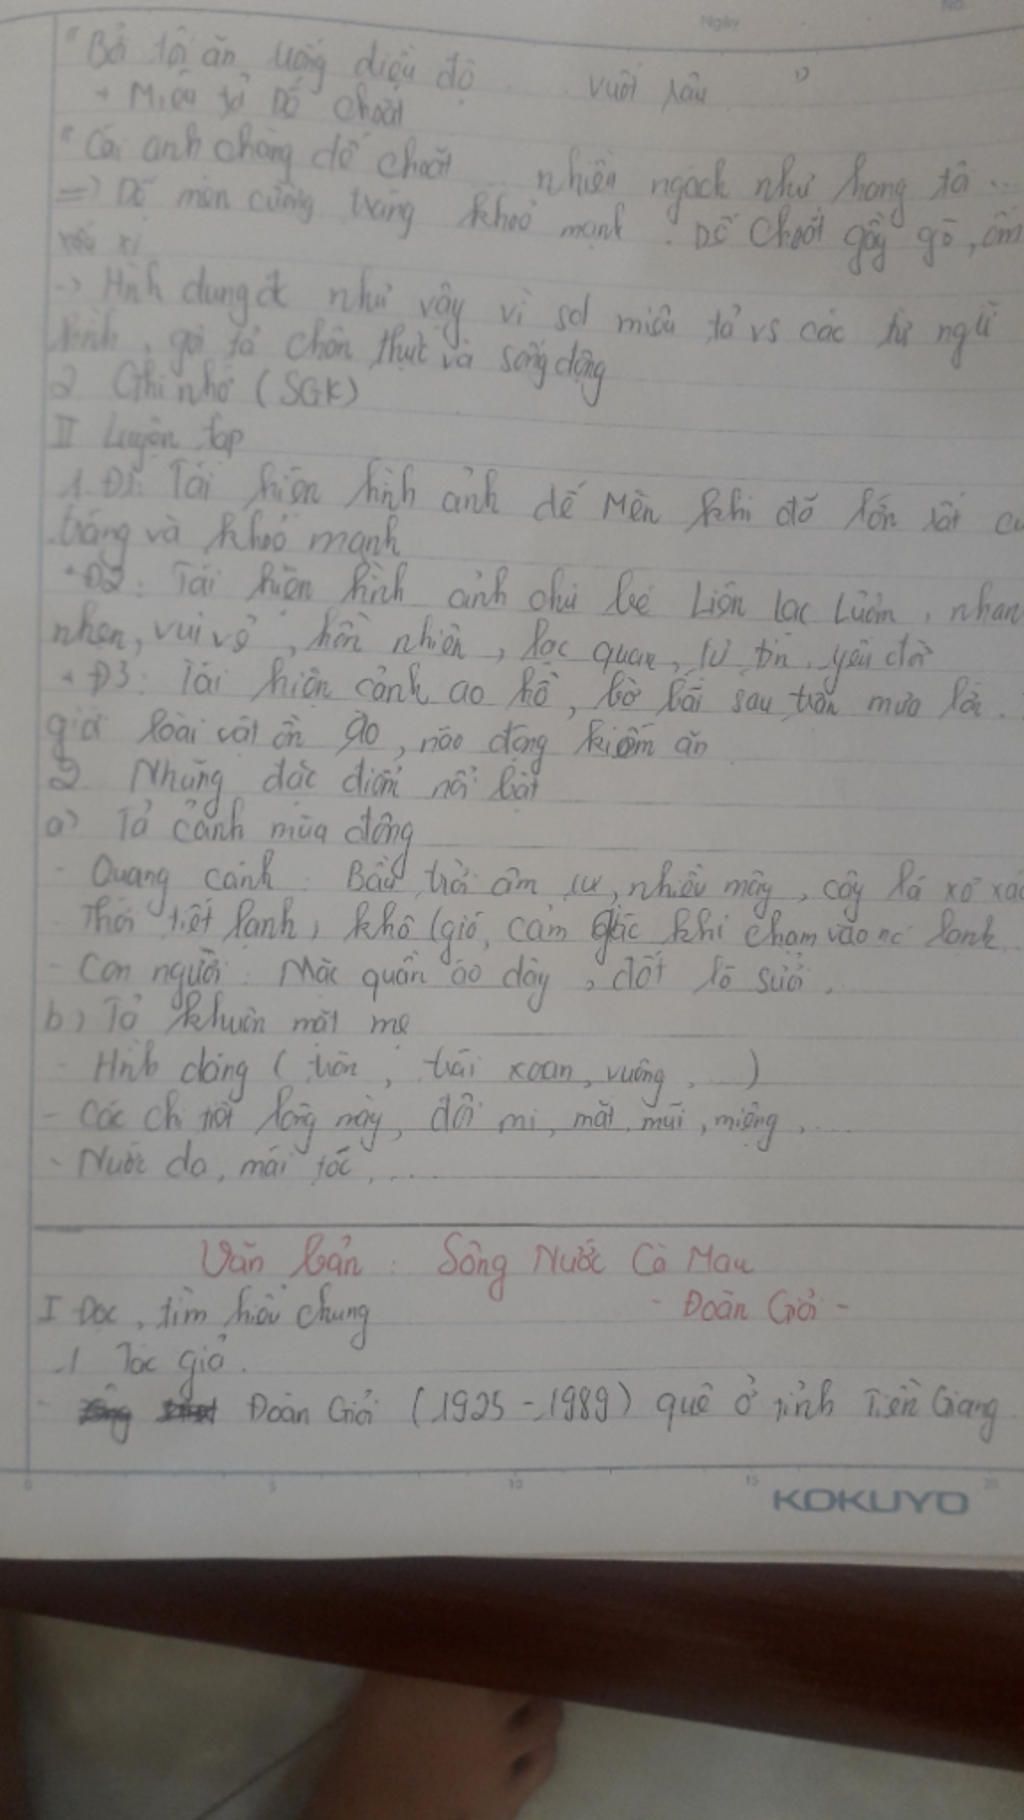 Ngày
No.
"Bởi tôi ăn uống điều độ ... vuốt râu"
+ Miêu tả Dế choắt
"Cái anh chàng dế choắt ... nhiều ngách như hang tô...
=> Dế mèn cường tráng khoẻ mạnh. Dế Choắt gầy gò, ốm
xấu xí
-> Hình dung đc như vậy vì sd miêu tả vs các từ ngữ
hình, gợi tả chân thực và sống động
2 Ghi nhớ (SGK)
II Luyện tập
1. Đ1: Tái hiện hình ảnh dế Mèn khi đã lớn rất c
tráng và khoẻ mạnh
+ Đ2: Tái hiện hình ảnh chú bé Liên lạc Lượm, nhan
nhẹn, vui vẻ, hồn nhiên, lạc quan, tự tin, yêu đời
+ Đ3: Tái hiện cảnh ao hồ, bờ bãi sau trận mưa lớn.
giới loài vật ồn ào, náo động kiếm ăn
2 Những đặc điểm nổi bật
a) Tả cảnh mùa đông
- Quang cảnh: Bầu trời âm u, nhiều mây, cây lá xơ xác
- Thời tiết lạnh, khô (gió, cảm giác khi chạm vào nc lạnh
- Con người: Mặc quần áo dày, đốt lò sưởi.
b) Tả khuôn mặt mẹ
- Hình dáng (tròn, trái xoan, vuông, ...)
- Các chi tiết lông mày, đôi mi, mắt, mũi, miệng, ....
- Nước da, mái tóc, ....
Văn bản: Sông Nước Cà Mau
I Đọc, tìm hiểu chung
- Đoàn Giỏi -
1 Tác giả.
- Đoàn Giỏi (1925 - 1989) quê ở tỉnh Tiền Giang
0 5 10 15 20
KOKUYO